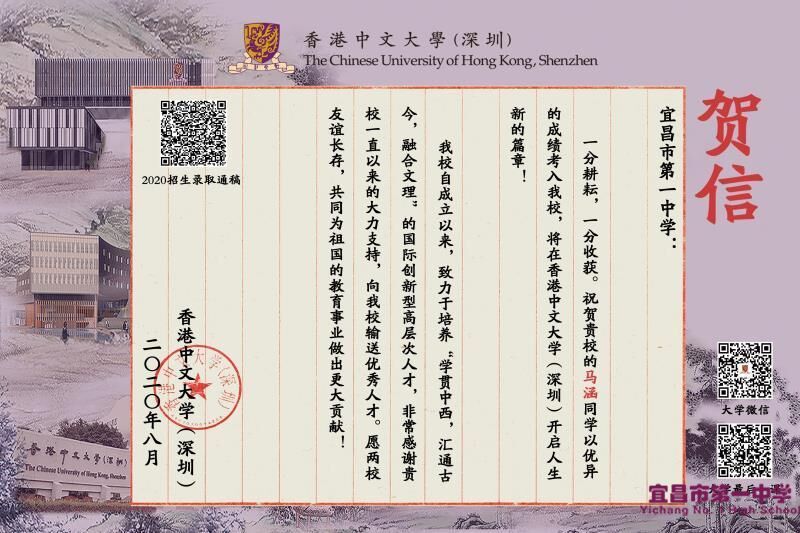 香港中文大學(深圳)
The Chinese University of Hong Kong, Shenzhen
贺信
宜昌市第一中学：
一分耕耘，一分收获。祝贺贵校的马涵同学以优异
的成绩考入我校，将在香港中文大学（深圳）开启人生
新的篇章！
我校自成立以来，致力于培养“学贯中西，汇通古
今，融合文理”的国际创新型高层次人才，非常感谢贵
校一直以来的大力支持，向我校输送优秀人才。愿两校
友谊长存，共同为祖国的教育事业做出更大贡献！
2020招生录取通稿
香港中文大学（深圳）
二〇二〇年八月
香港中文大学(深圳)
香港中文大學(深圳)
The Chinese University of Hong Kong, Shenzhen
大学微信
宜昌市第一中学
Yichang No. 1 High School